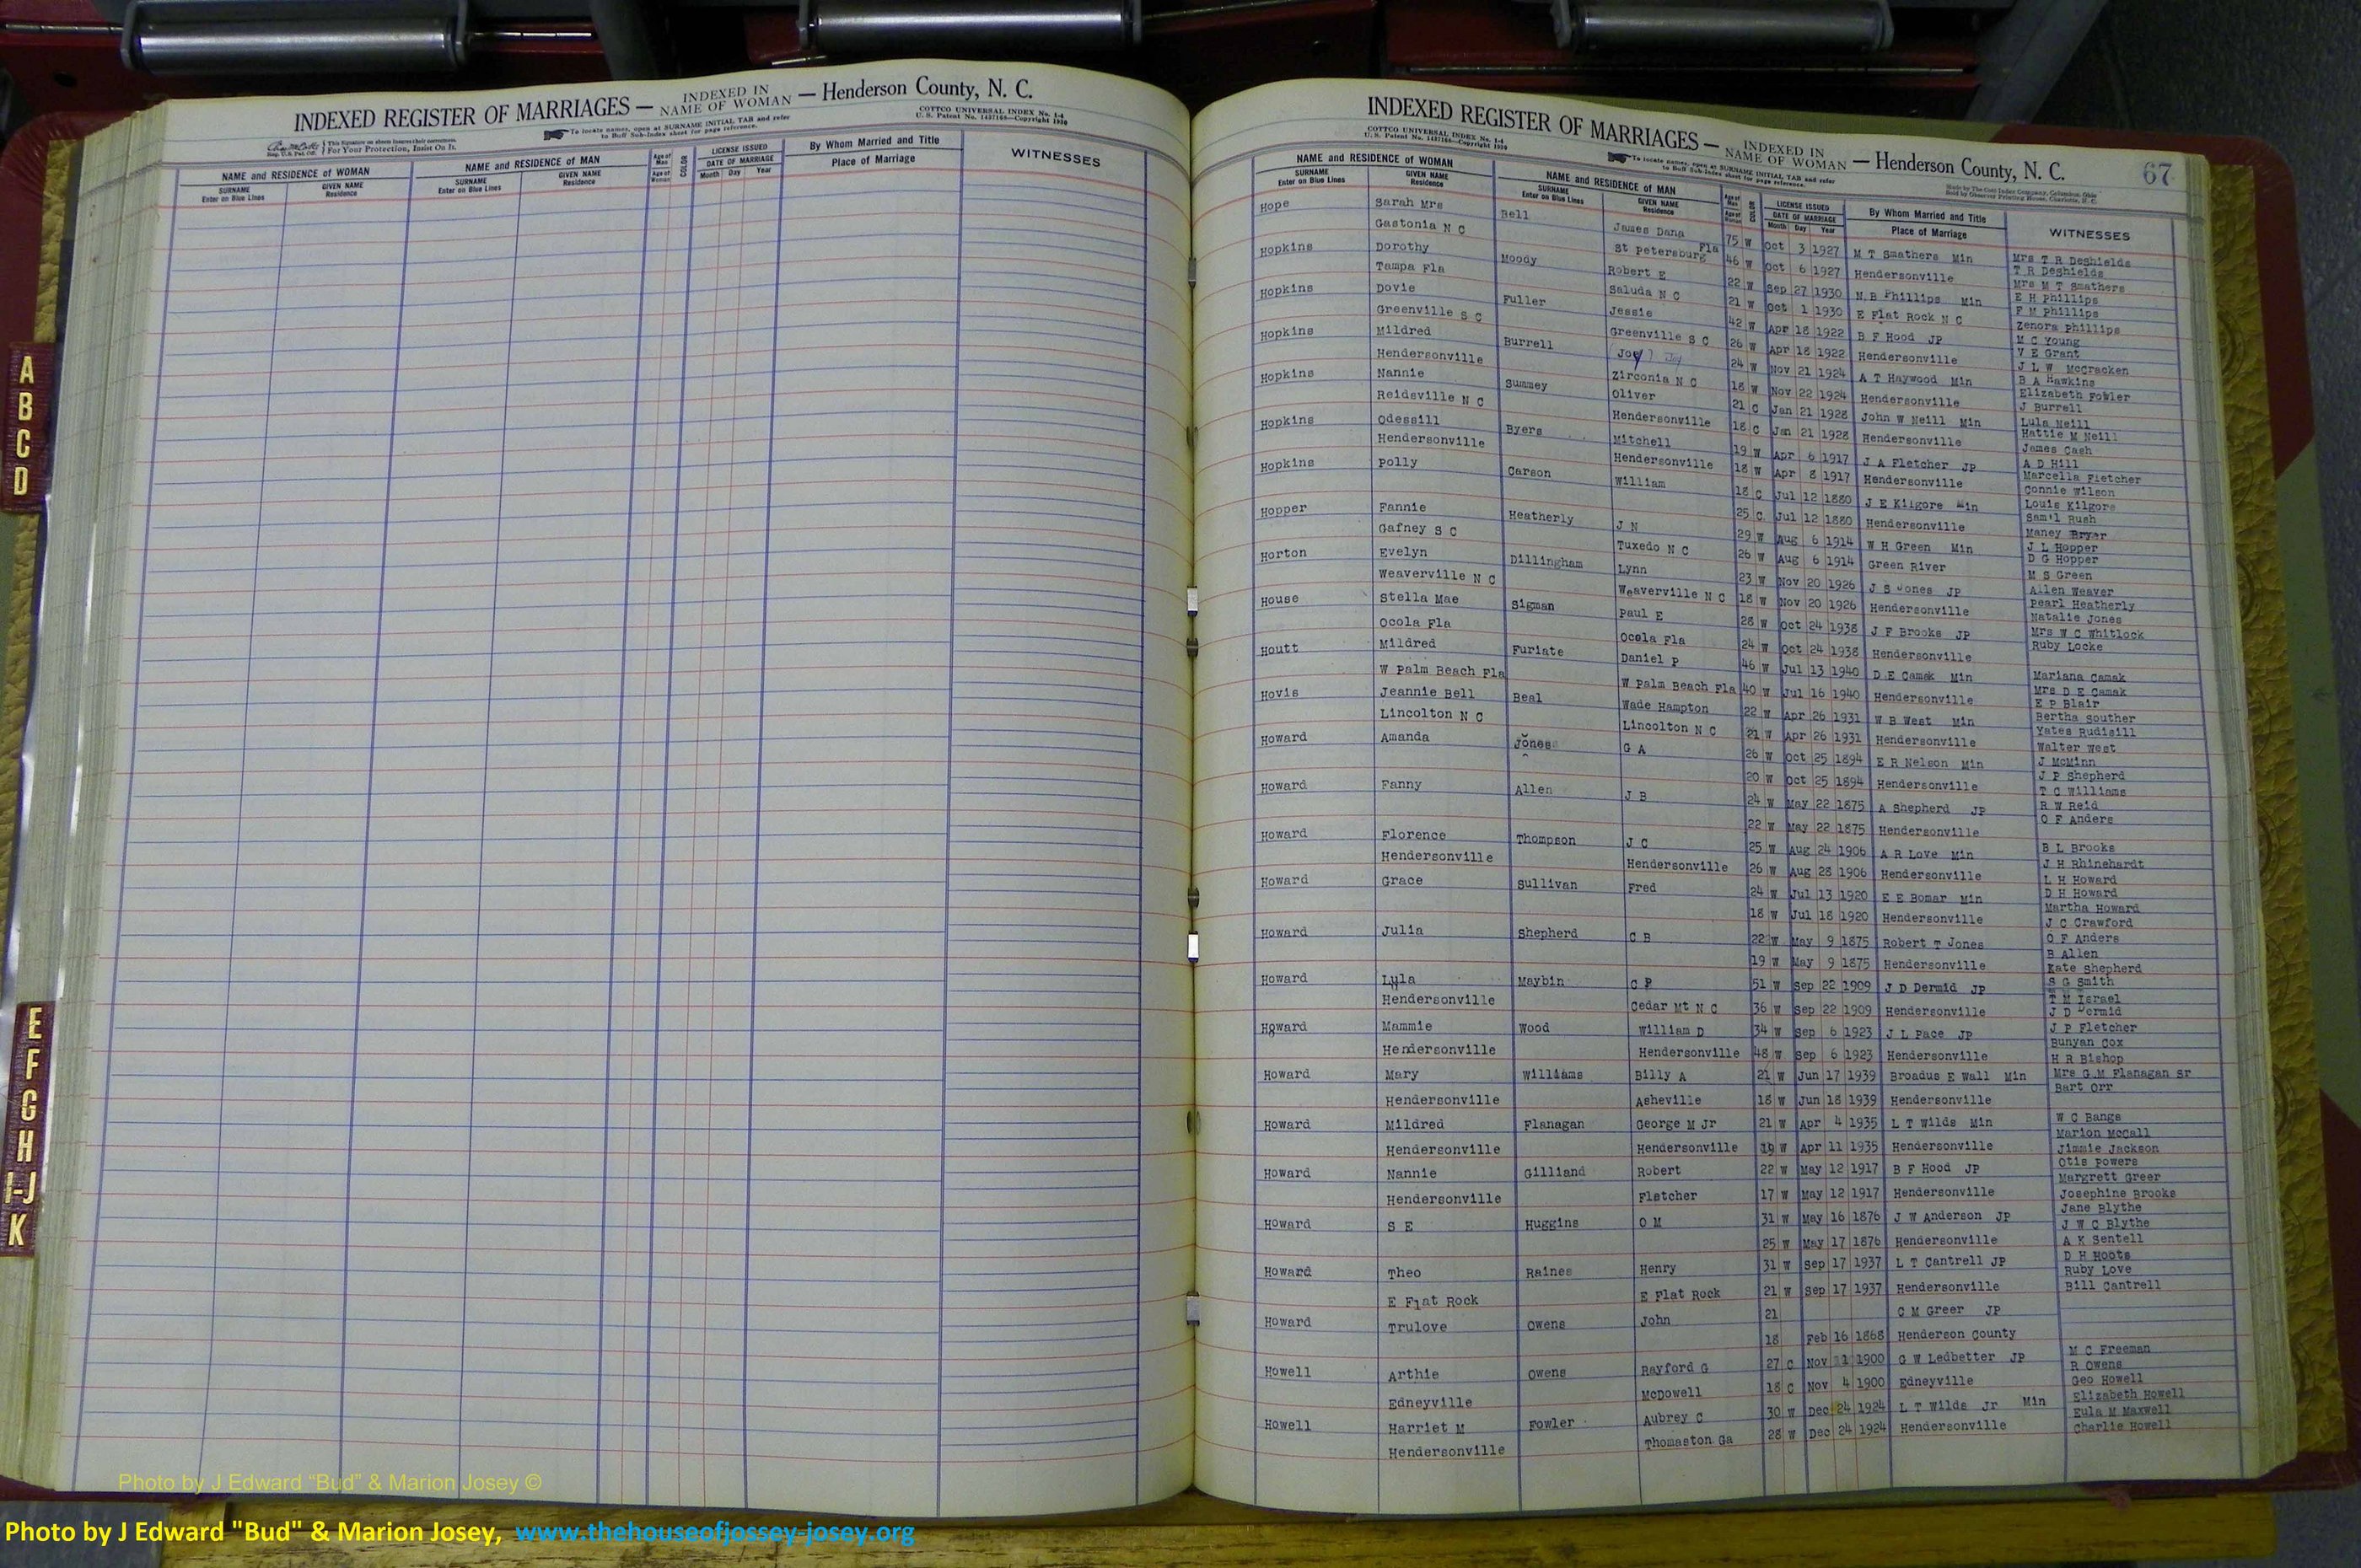 INDEXED REGISTER OF MARRIAGES — INDEXED IN NAME OF WOMAN — Henderson County, N. C.
To locate names, open at SURNAME INITIAL TAB and refer to Buff Sub-Index sheet for page reference.
COTTCO UNIVERSAL INDEX No. 1-4
U. S. Patent No. 1437168—Copyright 1930
For Your Protection, Insist On Is.
NAME and RESIDENCE OF WOMAN NAME and RESIDENCE OF MAN Age of Man COLOR LICENSE ISSUED By Whom Married and Title WITNESSES
SURNAME Enter on Blue Lines GIVEN NAME Residence SURNAME Enter on Blue Lines GIVEN NAME Residence Age of Woman DATE OF MARRIAGE Month Day Year Place of Marriage
A
B
C
D
E
F
G
H
I-J
K
INDEXED REGISTER OF MARRIAGES — INDEXED IN NAME OF WOMAN — Henderson County, N. C. 67
COTTCO UNIVERSAL INDEX No. 1-4
U. S. Patent No. 1437168—Copyright 1930
To locate names, open at SURNAME INITIAL TAB and refer to Buff Sub-Index sheet for page reference.
Made by The Cott Index Company, Columbus, Ohio
Sold by Observer Printing House, Charlotte, N. C.
NAME and RESIDENCE OF WOMAN NAME and RESIDENCE OF MAN Age of Man LICENSE ISSUED By Whom Married and Title WITNESSES
SURNAME Enter on Blue Lines GIVEN NAME Residence SURNAME Enter on Blue Lines GIVEN NAME Residence Age of Woman DATE OF MARRIAGE Month Day Year Place of Marriage
Hope Sarah Mrs Bell James Dana 75 W Oct 3 1927 M T Smathers Min Mrs T R Deshields
T R Deshields
Gastonia N C St Petersburg Fla 46 W Oct 6 1927 Hendersonville Mrs M T Smathers
Hopkins Dorothy Moody Robert E 22 W Sep 27 1930 N B Phillips Min E H Phillips
F M Phillips
Tampa Fla Saluda N C 21 W Oct 1 1930 E Flat Rock N C Zenora Phillips
Hopkins Dovie Fuller Jessie 42 W Apr 18 1922 B F Hood JP M C Young
V E Grant
Greenville S C Greenville S C 26 W Apr 18 1922 Hendersonville J L W McCracken
Hopkins Mildred Burrell Joe 24 W Nov 21 1924 A T Haywood Min B A Hawkins
Elizabeth Fowler
Hendersonville Zirconia N C 18 W Nov 22 1924 Hendersonville J Burrell
Hopkins Nannie Summey Oliver 21 C Jan 21 1928 John W Neill Min Lula Neill
Hattie M Neill
Reidsville N C Hendersonville 18 C Jan 21 1928 Hendersonville James Cash
Hopkins Odessill Byers Mitchell 19 W Apr 6 1917 J A Fletcher JP A D Hill
Marcella Fletcher
Hendersonville Hendersonville 18 W Apr 8 1917 Hendersonville Connie Wilson
Hopkins Polly Carson William 18 C Jul 12 1880 J E Kilgore Min Louis Kilgore
Sam'l Rush
25 C Jul 12 1880 Hendersonville Maney Bryer
Hopper Fannie Heatherly J N 29 W Aug 6 1914 W H Green Min J L Hopper
D G Hopper
Gafney S C Tuxedo N C 26 W Aug 6 1914 Green River M S Green
Horton Evelyn Dillingham Lynn 23 W Nov 20 1926 J S Jones JP Allen Weaver
Pearl Heatherly
Weaverville N C Weaverville N C 18 W Nov 20 1926 Hendersonville Natalie Jones
House Stella Mae Sigman Paul E 28 W Oct 24 1938 J F Brooks JP Mrs W C Whitlock
Ruby Locke
Ocola Fla Ocola Fla 24 W Oct 24 1938 Hendersonville
Houtt Mildred Furiate Daniel P 46 W Jul 13 1940 D E Camak Min Mariana Camak
Mrs D E Camak
W Palm Beach Fla W Palm Beach Fla 40 W Jul 16 1940 Hendersonville E P Blair
Hovis Jeannie Bell Beal Wade Hampton 22 W Apr 26 1931 W B West Min Bertha Souther
Yates Rudisill
Lincolton N C Lincolton N C 21 W Apr 26 1931 Hendersonville Walter West
Howard Amanda Jones G A 26 W Oct 25 1894 E R Nelson Min J McMinn
J P Shepherd
20 W Oct 25 1894 Hendersonville T C Williams
Howard Fanny Allen J B 24 W May 22 1875 A Shepherd JP R W Reid
O F Anders
22 W May 22 1875 Hendersonville
Howard Florence Thompson J C 25 W Aug 24 1906 A R Love Min B L Brooks
J H Rhinehardt
Hendersonville Hendersonville 26 W Aug 28 1906 Hendersonville L H Howard
Howard Grace Sullivan Fred 24 W Jul 13 1920 E E Bomar Min D H Howard
Martha Howard
18 W Jul 18 1920 Hendersonville J C Crawford
Howard Julia Shepherd C B 22 W May 9 1875 Robert T Jones O F Anders
B Allen
19 W May 9 1875 Hendersonville Kate Shepherd
Howard Lula Maybin C P 51 W Sep 22 1909 J D Dermid JP S G Smith
T M Israel
Hendersonville Cedar Mt N C 36 W Sep 22 1909 Hendersonville J D Dermid
Howard Mammie Wood William D 34 W Sep 6 1923 J L Pace JP J P Fletcher
Bunyan Cox
Hendersonville Hendersonville 48 W Sep 6 1923 Hendersonville H R Bishop
Howard Mary Williams Billy A 21 W Jun 17 1939 Broadus E Wall Min Mrs G M Flanagan Sr
Bart Orr
Hendersonville Asheville 18 W Jun 18 1939 Hendersonville
Howard Mildred Flanagan George M Jr 21 W Apr 4 1935 L T Wilds Min W C Bangs
Marion McCall
Hendersonville Hendersonville 19 W Apr 11 1935 Hendersonville Jimmie Jackson
Howard Nannie Gilliand Robert 22 W May 12 1917 B F Hood JP Otis Powers
Margrett Greer
Hendersonville Fletcher 17 W May 12 1917 Hendersonville Josephine Brooks
Howard S E Huggins O M 31 W May 16 1876 J W Anderson JP Jane Blythe
J W C Blythe
25 W May 17 1876 Hendersonville A K Sentell
Howard Theo Raines Henry 31 W Sep 17 1937 L T Cantrell JP D H Hoots
Ruby Love
E Flat Rock E Flat Rock 21 W Sep 17 1937 Hendersonville Bill Cantrell
Howard Trulove Owens John 21 C M Greer JP
18 Feb 16 1868 Henderson County
Howell Arthie Owens Rayford G 27 C Nov 1 1900 G W Ledbetter JP M C Freeman
R Owens
Edneyville McDowell 18 C Nov 4 1900 Edneyville Geo Howell
Howell Harriet M Fowler Aubrey C 30 W Dec 24 1924 L T Wilds Jr Min Elizabeth Howell
Eula M Maxwell
Hendersonville Thomaston Ga 28 W Dec 24 1924 Hendersonville Charlie Howell
Photo by J Edward "Bud" & Marion Josey ©
Photo by J Edward "Bud" & Marion Josey, www.thehouseofjossey-josey.org